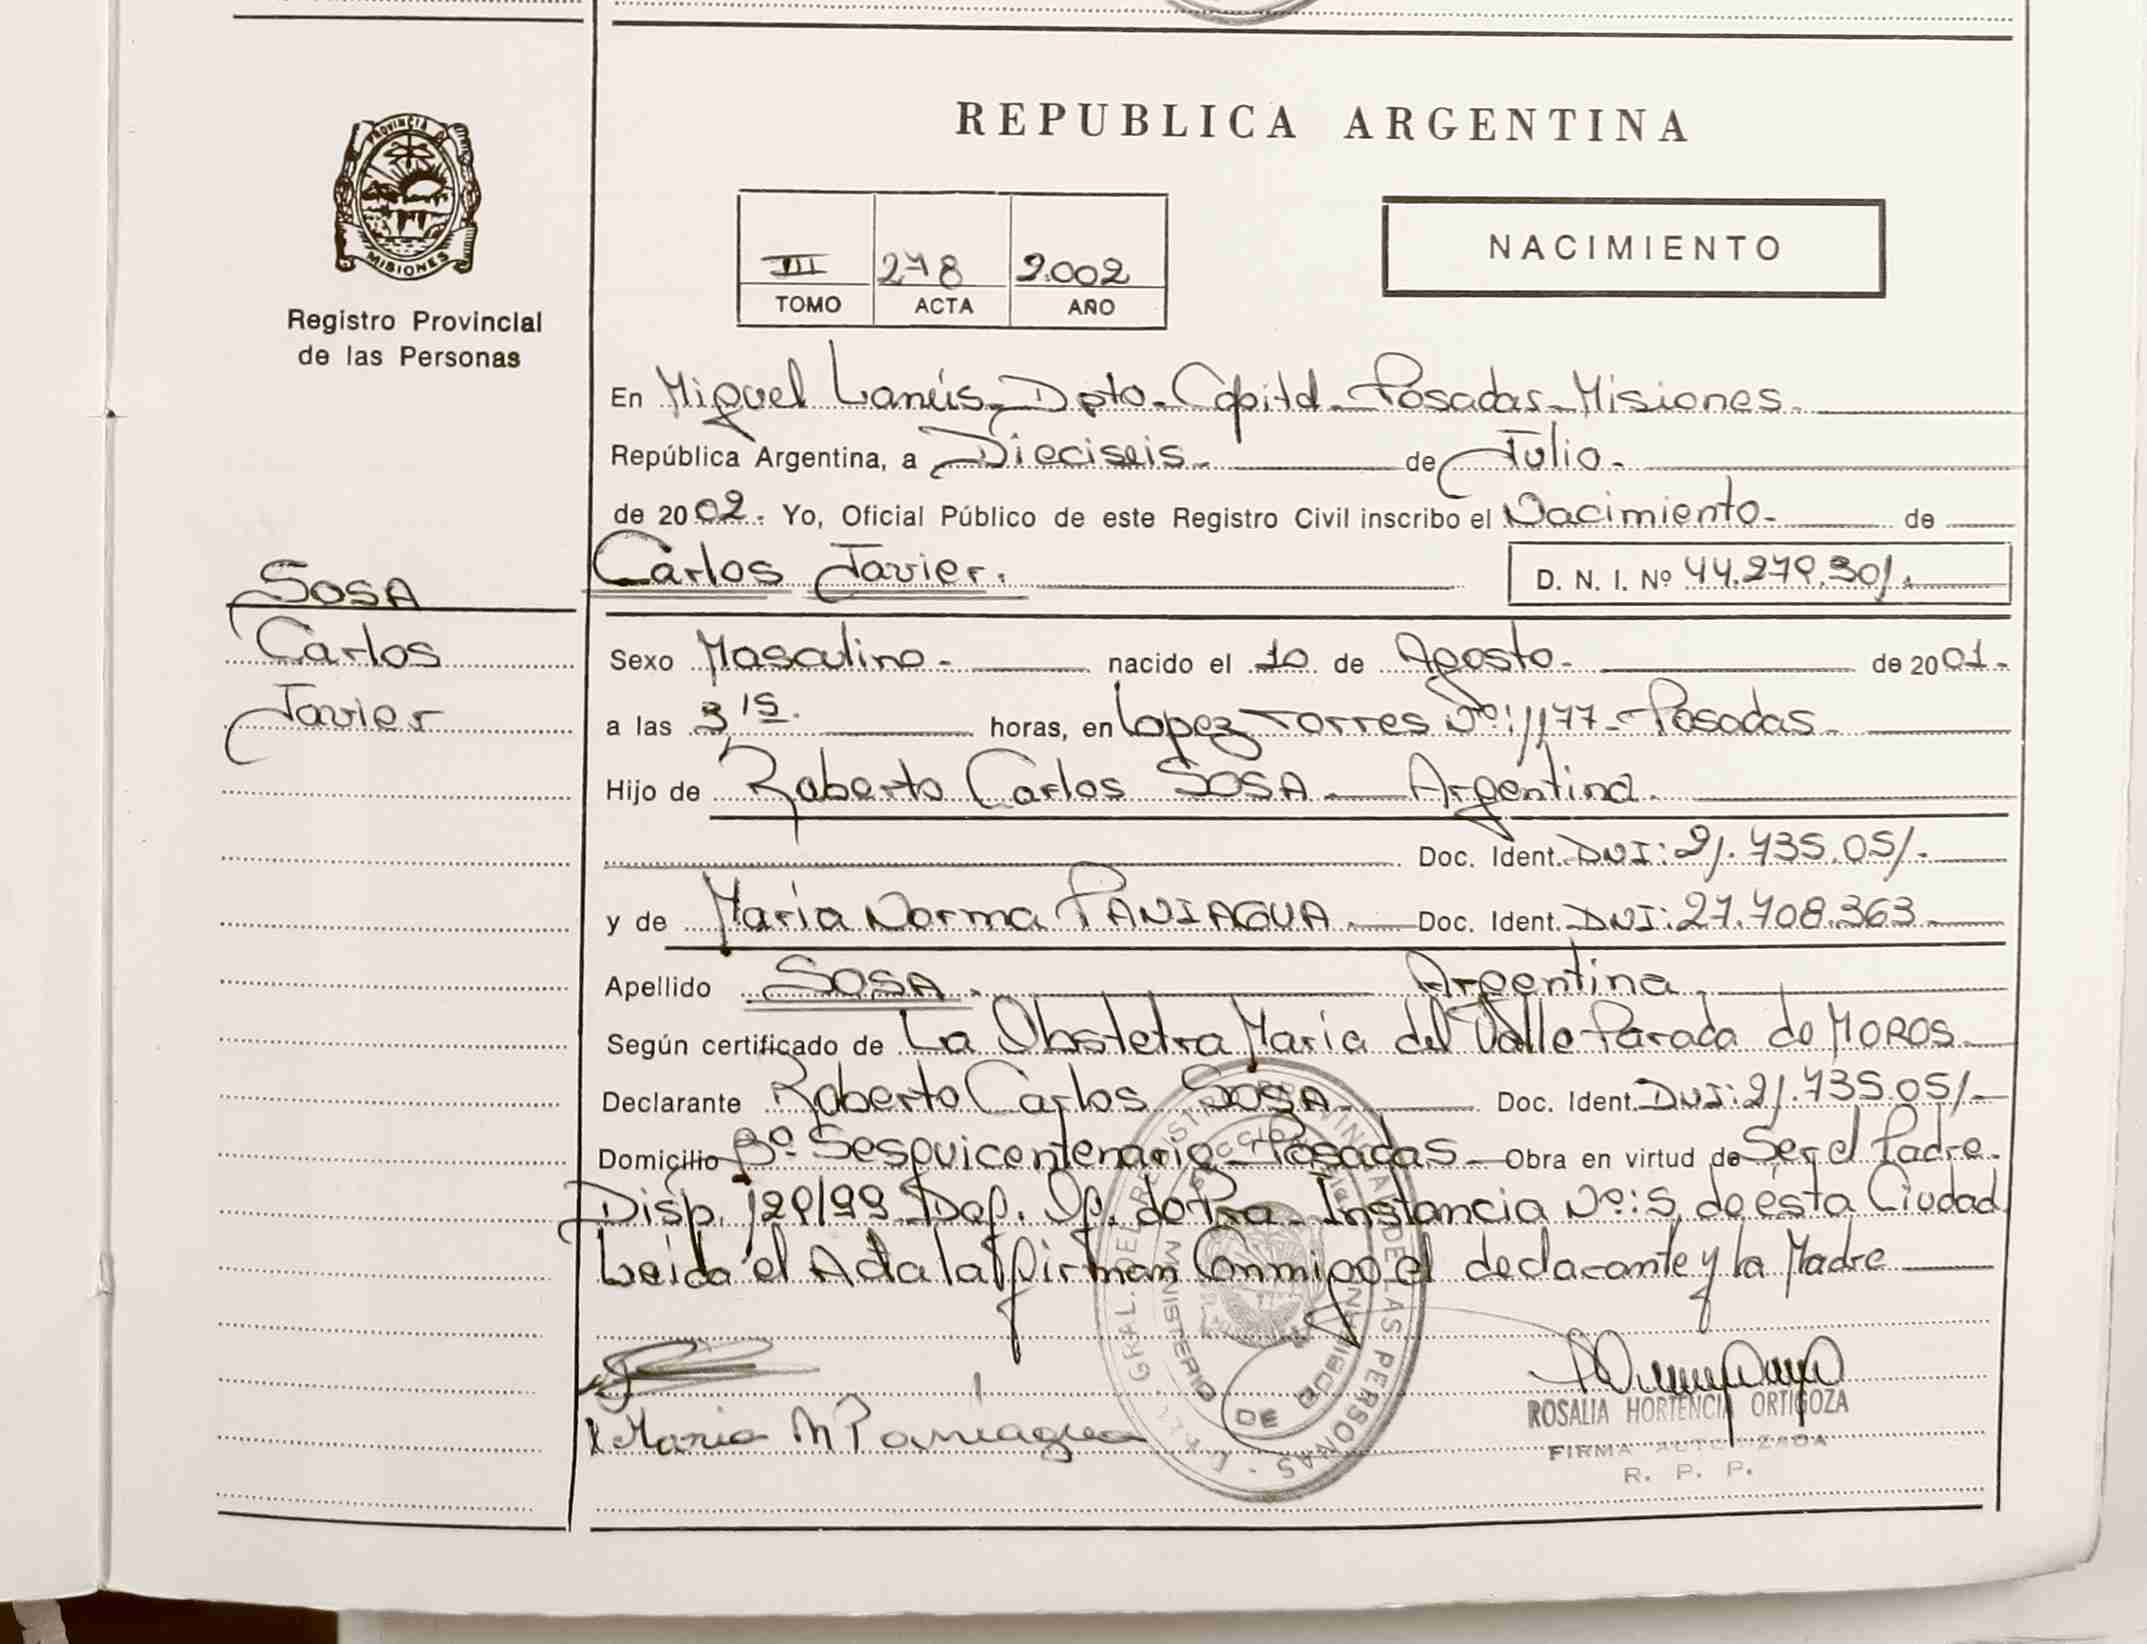 REPUBLICA ARGENTINA
PROVINCIA DE
MISIONES
Registro Provincial
de las Personas
NACIMIENTO
III 278 2.002
TOMO ACTA AÑO
En Miguel Lanús - Dpto - Capital - Posadas - Misiones.
República Argentina, a Dieciseis - de Julio -
de 2002. Yo, Oficial Público de este Registro Civil inscribo el Nacimiento - de
Carlos Javier. D. N. I. Nº
SOSA
Carlos
Javier
Sexo Masculino - nacido el 10 de Agosto - de 2001.
a las 3 15. horas, en Lopez Torres Nº: 1177 - Posadas -
Hijo de Roberto Carlos SOSA - Argentina.
Doc. Ident. DNI: 21.735.051.
y de María Norma PANIAGUA. Doc. Ident. DNI: 27.708.363
Apellido SOSA. Argentina.
Según certificado de La Obstetra María del Valle Parada de MOROS
Declarante Roberto Carlos SOSA. Doc. Ident. DNI: 21.735.051
Domicilio Bº Sesquicentenario - Posadas - Obra en virtud de Ser el Padre.
Disp. Def. Of. de Instancia Nº: 5, de ésta Ciudad
Leida el Acta la firman Conmigo el declarante y la Madre
María N Paniagua
ROSALIA HORTENCIA ORTIGOZA
FIRMA AUTORIZADA
R. P. P.
GRAL. DEL REGISTRO PROVINCIAL DE LAS PERSONAS
MINISTERIO DE GOBIERNO